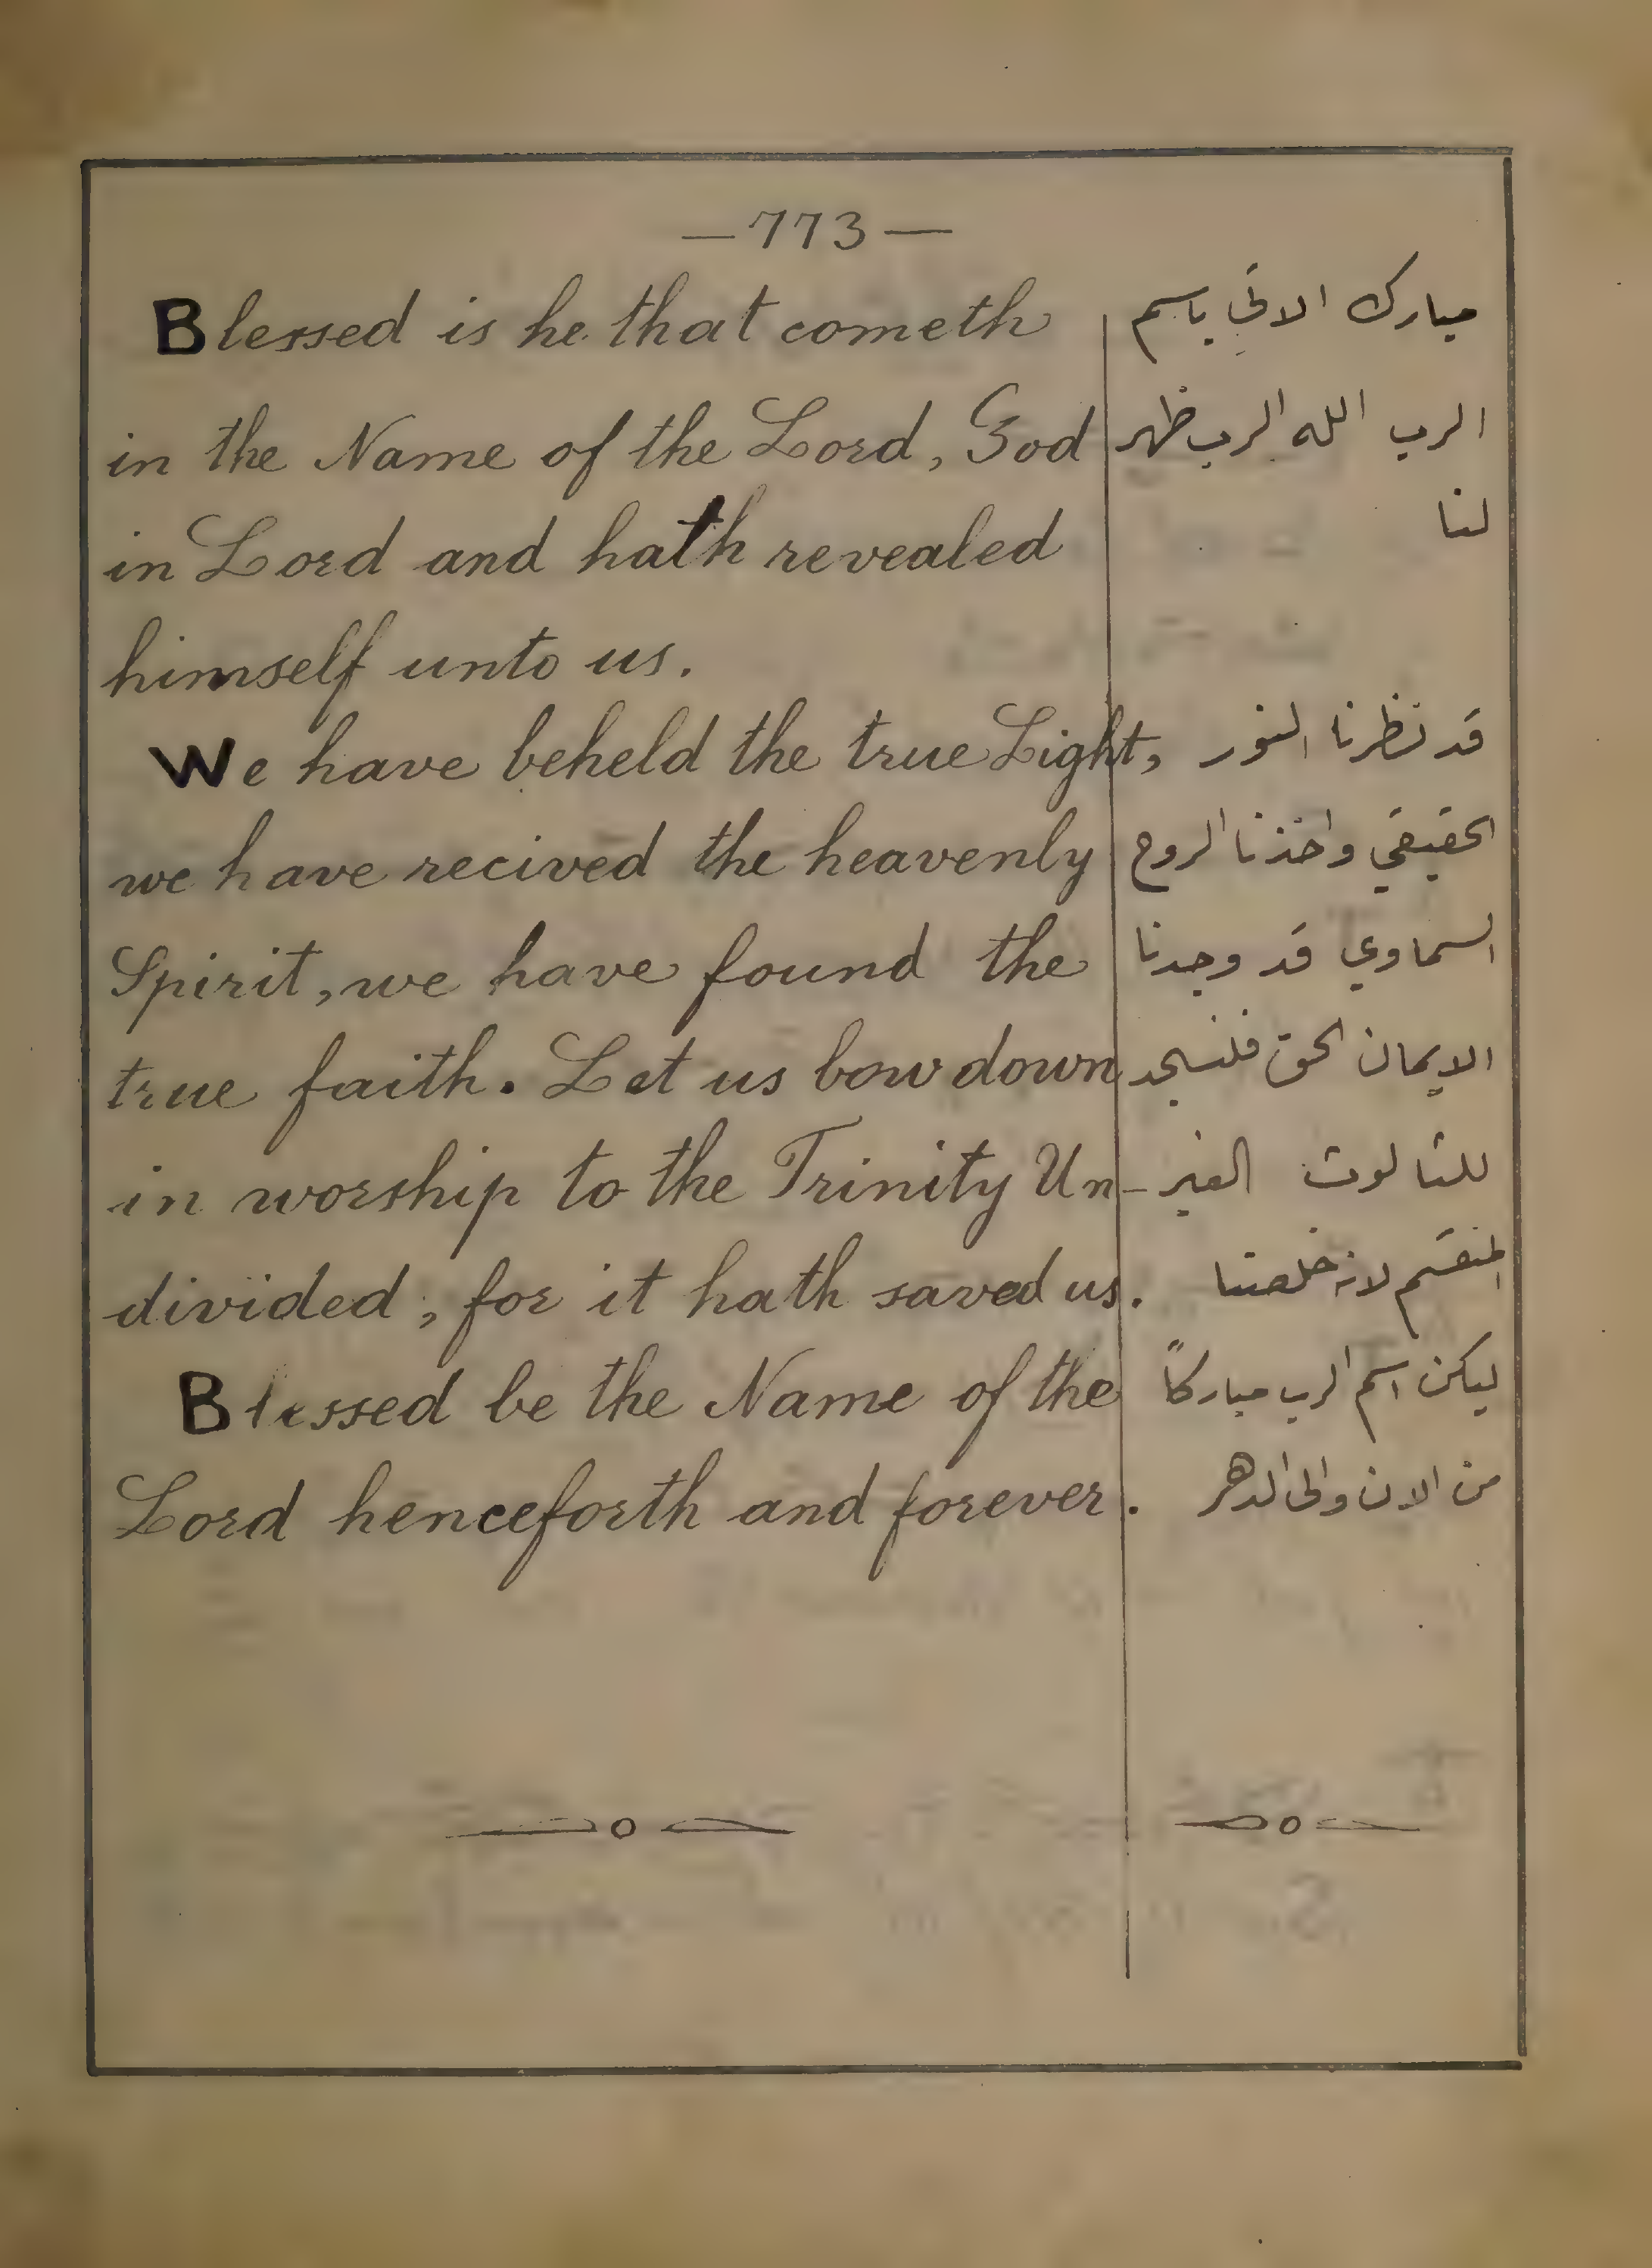 —773—
Blessed is he that cometh
in the Name of the Lord, God
in Lord and hath revealed
himself unto us.
We have beheld the true Light,
we have recived the heavenly
Spirit, we have found the
true faith. Let us bow down
in worship to the Trinity Un-
divided, for it hath saved us.
Blessed be the Name of the
Lord henceforth and forever.
مبارك الاتي باسم
الرب الله الرب ظهر
لنا
قد نظرنا النور
الحقيقي واخذنا الروح
السماوي قد وجدنا
الايمان الحق فلنسجد
للثالوث الغير
المنقسم لانه خلصنا
ليكن اسم الرب مباركاً
من الان والى الدهر